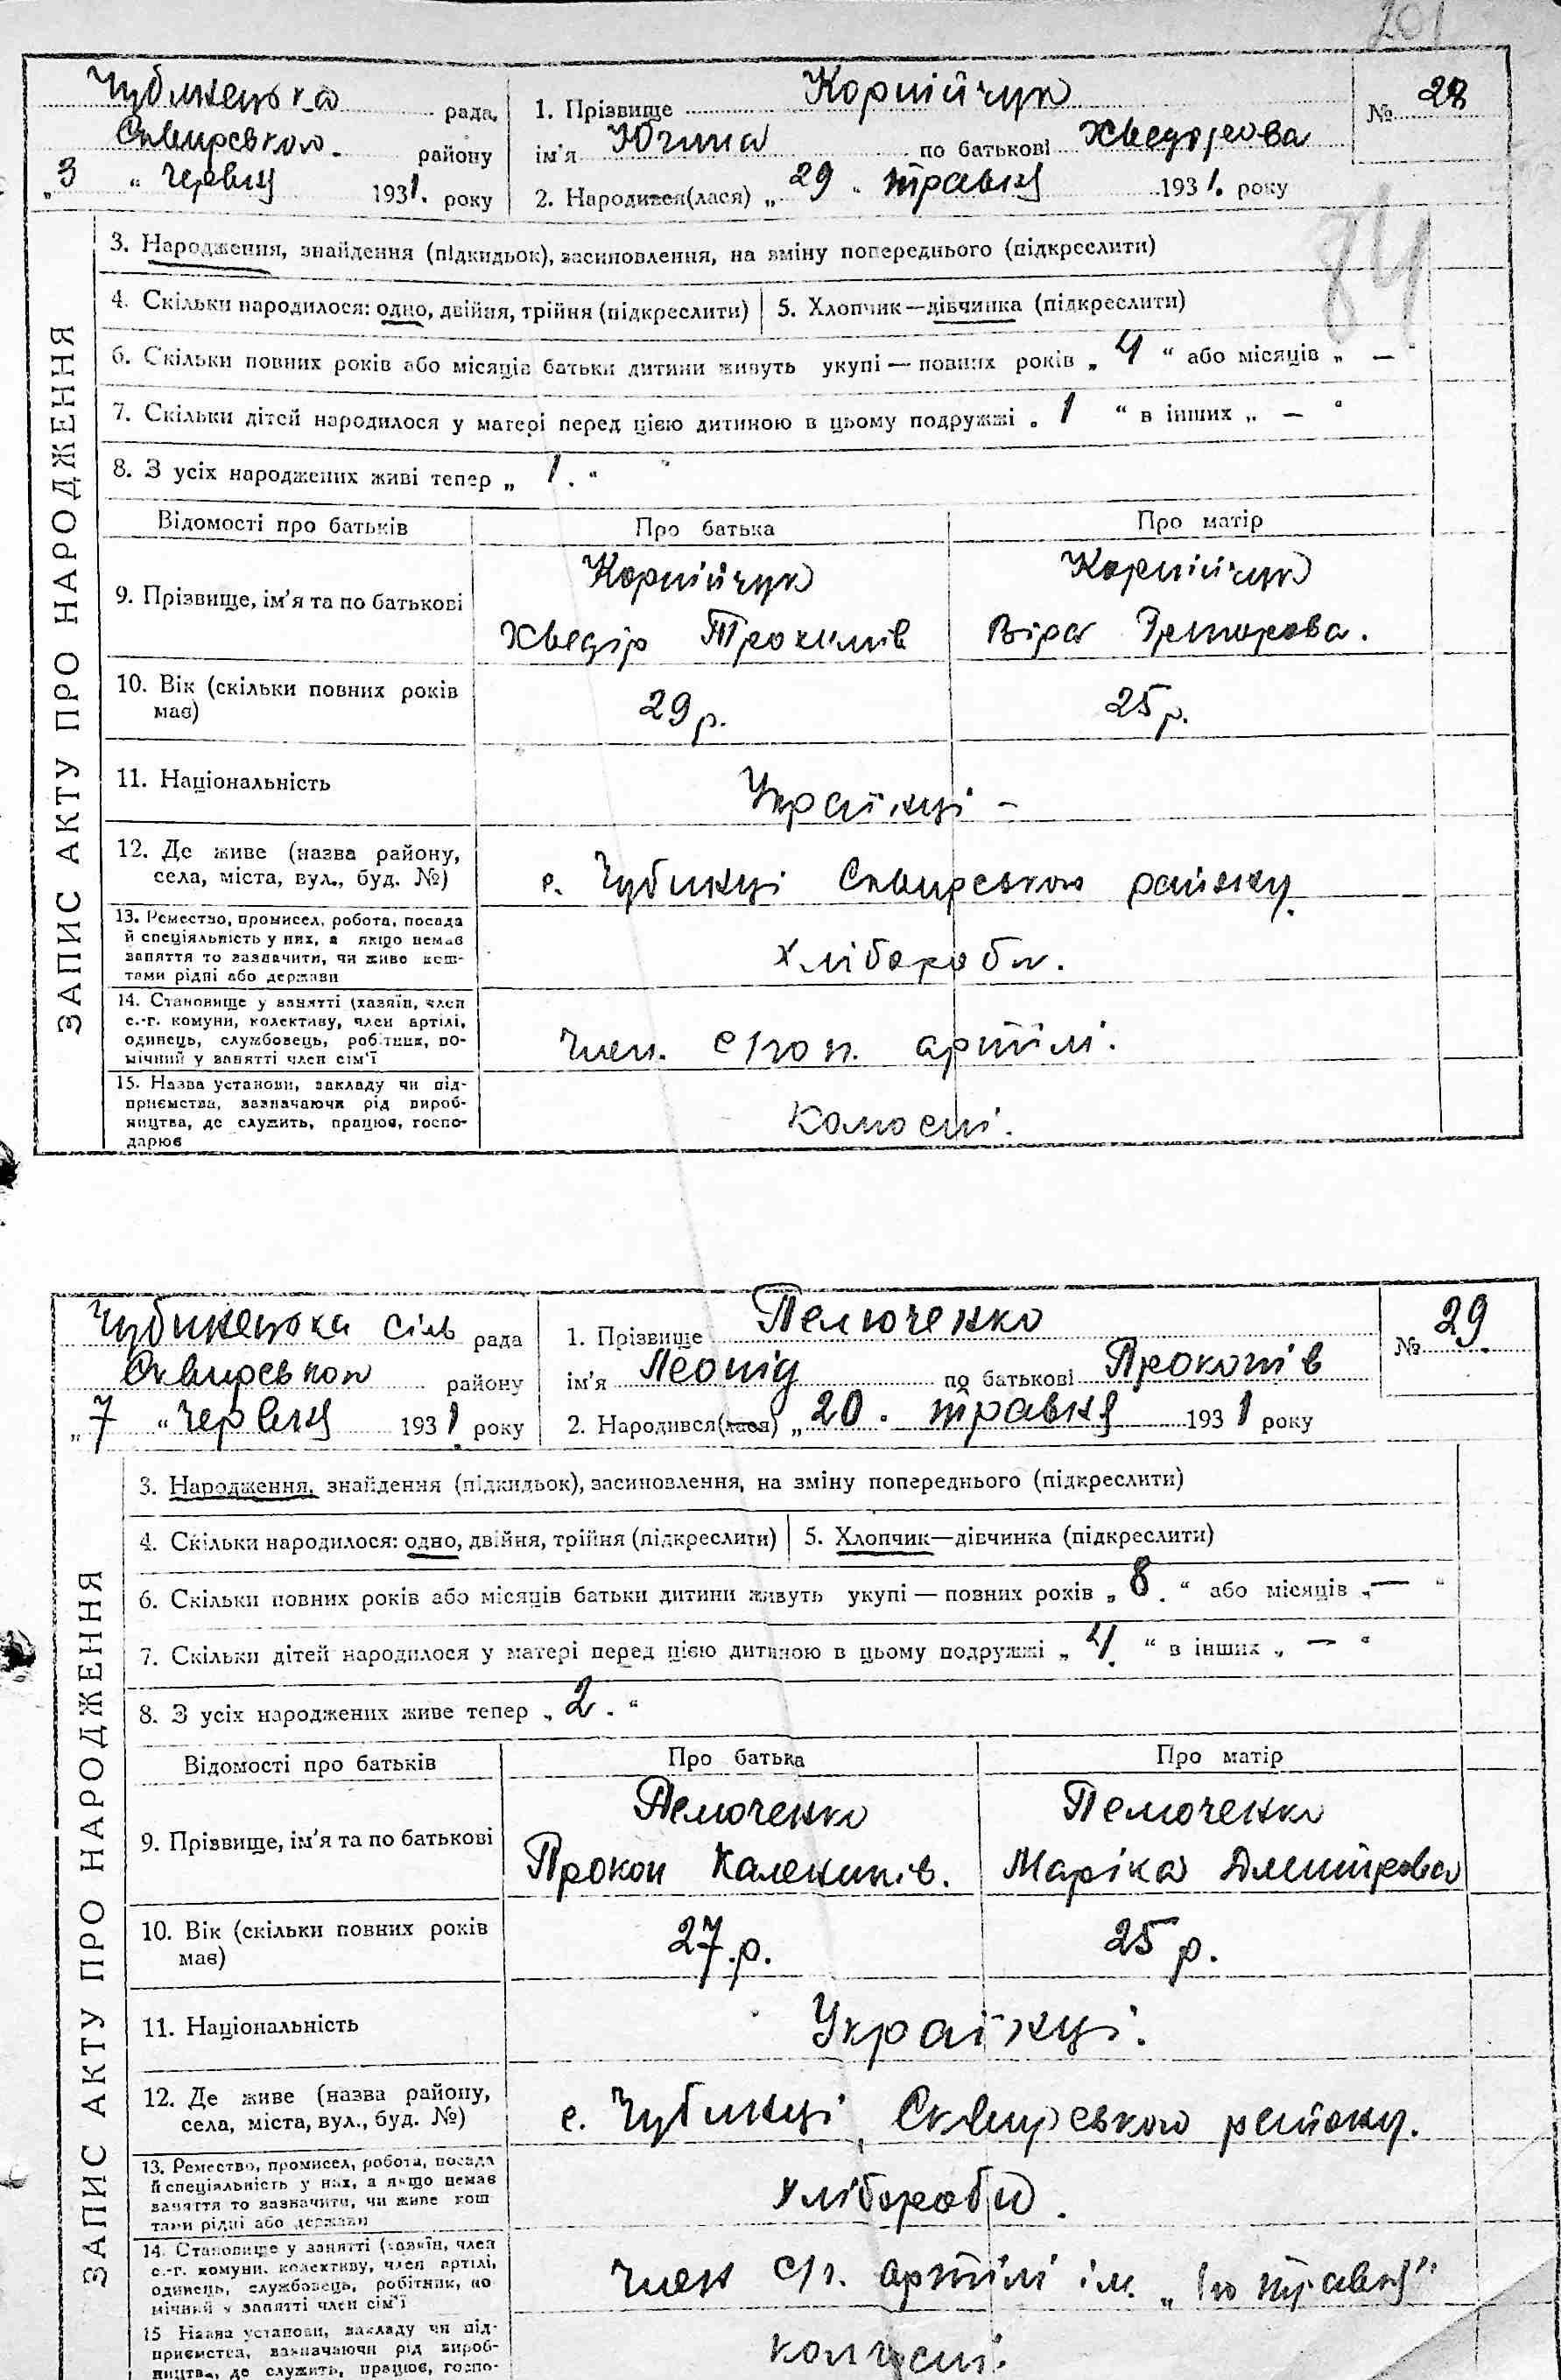 201
Чубинецька рада,
Сквирського району
„3“ червня 1931. року
1. Прізвище Корнійчук
ім'я Югина по батькові Хведорова
2. Народився(лася) „29“ травня 1931. року
№ 28
84
ЗАПИС АКТУ ПРО НАРОДЖЕННЯ
3. Народження, знайдення (підкидьок), засиновлення, на зміну попереднього (підкреслити)
4. Скільки народилося: одно, двійня, трійня (підкреслити) 5. Хлопчик—дівчинка (підкреслити)
6. Скільки повних років або місяців батьки дитини живуть укупі — повних років „4“ або місяців „ —
7. Скільки дітей народилося у матері перед цією дитиною в цьому подружжі „1“ в інших „ — “
8. З усіх народжених живі тепер „1.“
Відомості про батьків Про батька Про матір
9. Прізвище, ім'я та по батькові
Корнійчук Корнійчук
Хведір Трохимів Віра
10. Вік (скільки повних років
має)
29 р. 25 р.
11. Національність
Українці -
12. Де живе (назва району,
села, міста, вул., буд. №)
с. Чубинці Сквирського району.
13. Ремество, промисел, робота, посада
й спеціяльність у них, а якщо немає
заняття то зазначити, чи живе кош-
тами рідні або держави
хлібороби.
14. Становище у занятті (хазяїн, член
с.-г. комуни, колективу, член артілі,
одинець, службовець, робітник, по-
мічний у занятті член сім'ї
член. артілі.
15. Назва установи, закладу чи під-
приємства, зазначаючи рід вироб-
ництва, де служить, працює, госпо-
дарює
Чубинецька сіль рада
Сквирського району
„7“ червня 1931 року
1. Прізвище Пелюченко
ім'я Леонід по батькові Прокопів
2. Народився(лася) „20. травня 1931 року
№ 29.
ЗАПИС АКТУ ПРО НАРОДЖЕННЯ
3. Народження, знайдення (підкидьок), засиновлення, на зміну попереднього (підкреслити)
4. Скільки народилося: одно, двійня, трійня (підкреслити) 5. Хлопчик—дівчинка (підкреслити)
6. Скільки повних років або місяців батьки дитини живуть укупі — повних років „8.“ або місяців „ — “
7. Скільки дітей народилося у матері перед цією дитиною в цьому подружжі „4.“ в інших „ — “
8. З усіх народжених живе тепер „2.“
Відомості про батьків Про батька Про матір
9. Прізвище, ім'я та по батькові
Пелюченко Пелюченко
Прокоп Калеників. Маріка Дмитрова
10. Вік (скільки повних років
має)
27.р. 25 р.
11. Національність
Українці.
12. Де живе (назва району,
села, міста, вул., буд. №)
с. Чубинці, Сквирського району.
13. Ремество, промисел, робота, посада
й спеціяльність у них, а якщо немає
заняття то зазначити, чи живе кош
тами рідні або держави
хлібороби.
14. Становище у занятті (хазяїн, член
с.-г. комуни, колективу, член артілі,
одинець, службовець, робітник, по
мічний у занятті член сім'ї
член с/г. артілі ім. „1го травня"
15 Назва установи, закладу чи під-
приємства, зазначаючи рід вироб-
ництва, де служить, працює, госпо-